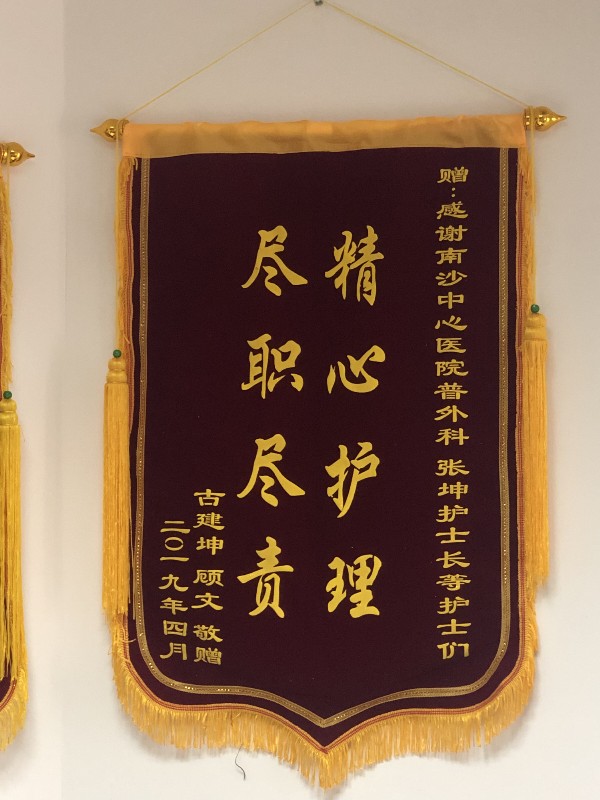 赠:感谢南沙中心医院普外科 张坤护士长等护士们
精心护理
尽职尽责
古建坤 顾文 敬赠
二〇一九年四月